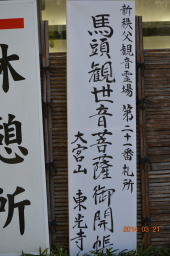 新秩父観音霊場 第二十一番札所
馬頭観世音菩薩御開帳
大宮山 東光寺
休憩所
2014 03 21